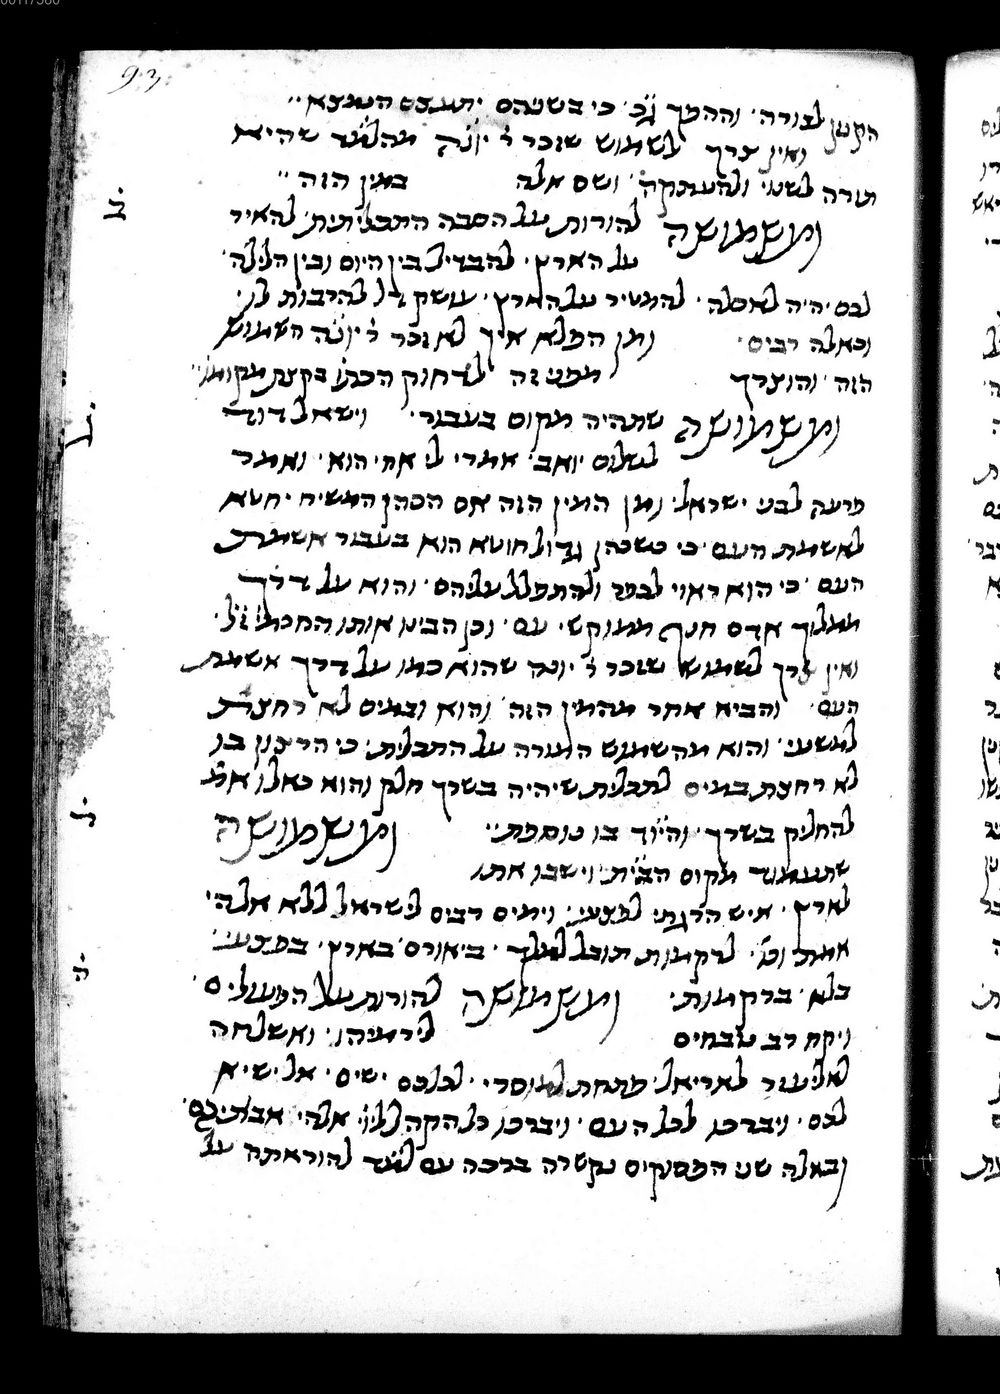 93
הקטן לצורה׳ וההפך ג״כ׳ כי בשניהם יתעצם הנמצא׳׳
ואין צרך לשמוש שזכר ר׳ יונה מהלמד שהיא
תורה לשנוי ולהעתקה׳ ושם אלה במין הזה׳׳
ב
ומשמושה להורות על הסבה התכליתית׳ להאיר
על הארץ׳ להבדיל בין היום ובין הלילה׳
לכם יהיה לאכלה׳ להמטיר על הארץ׳ עושק דל להרבות לו׳
וכאלה רבים׳ ומן הפלא איך לא זכר ר׳ יונה השמוש
הזה׳ והוצרך מפני זה לדחוק הכתו׳ בקצת מקומו׳׳
ג
ומשמושה שתהיה מקום בעבור׳ וישאל דוד
לשלום יואב׳ אמרי לי אחי הוא׳ ואמר
פרעה לבני ישראל׳ ומן המין הזה אם הכהן המשיח יחטא
לאשמת העם׳ כי כשכהן גדול חוטא הוא בעבור אשמת
העם׳ כי הוא ראוי לכפר ולהתפלל עליהם׳ והוא על דרך
ממלוך אדם חנף ממוקשי עם׳ וכן הבינו אותו החכמי׳ ז״ל׳
ואין צרך לשמוש שזכר ר׳ יונה שהוא כמו על דרך אשמת
העם׳ והביא אחר מהמין הזה׳ והוא ובמים לא רחצת
למשעי׳ והוא מהשמוש המורה על התכלית׳ כי הרצון בו
לא רחצת במים לתכלית שיהיה בשרך חלק והוא כאלו אמ׳
להחליק בשרך׳ והיו״ד בו נוספת׳׳
ד
ומשמושה
שתעמוד מקום הבי״ת׳ וישבו אתו
לארץ׳ איש הרגתי לפצעי׳ וימים רבים לישראל ללא אלהי
אמת וכו׳ לרקמות תובל למלך׳ ביאורם׳ בארץ׳ בפצעי׳
ה
בלא׳ ברקמות׳ ומשמושה להורות על הפעולים׳
ויקח רב טבחים לירמיהו׳ ואשלחה
לאליעזר לאריאל׳ פתחת למוסרי׳ לכלכם ישים׳ אל ישיא
לכם׳ ויברכו לכל העם׳ ויברכו כל הקהל ליי׳ אלהי אבתיהם׳
ובאלה שני הפסוקים נקשרה ברכה עם למד להוראתה על